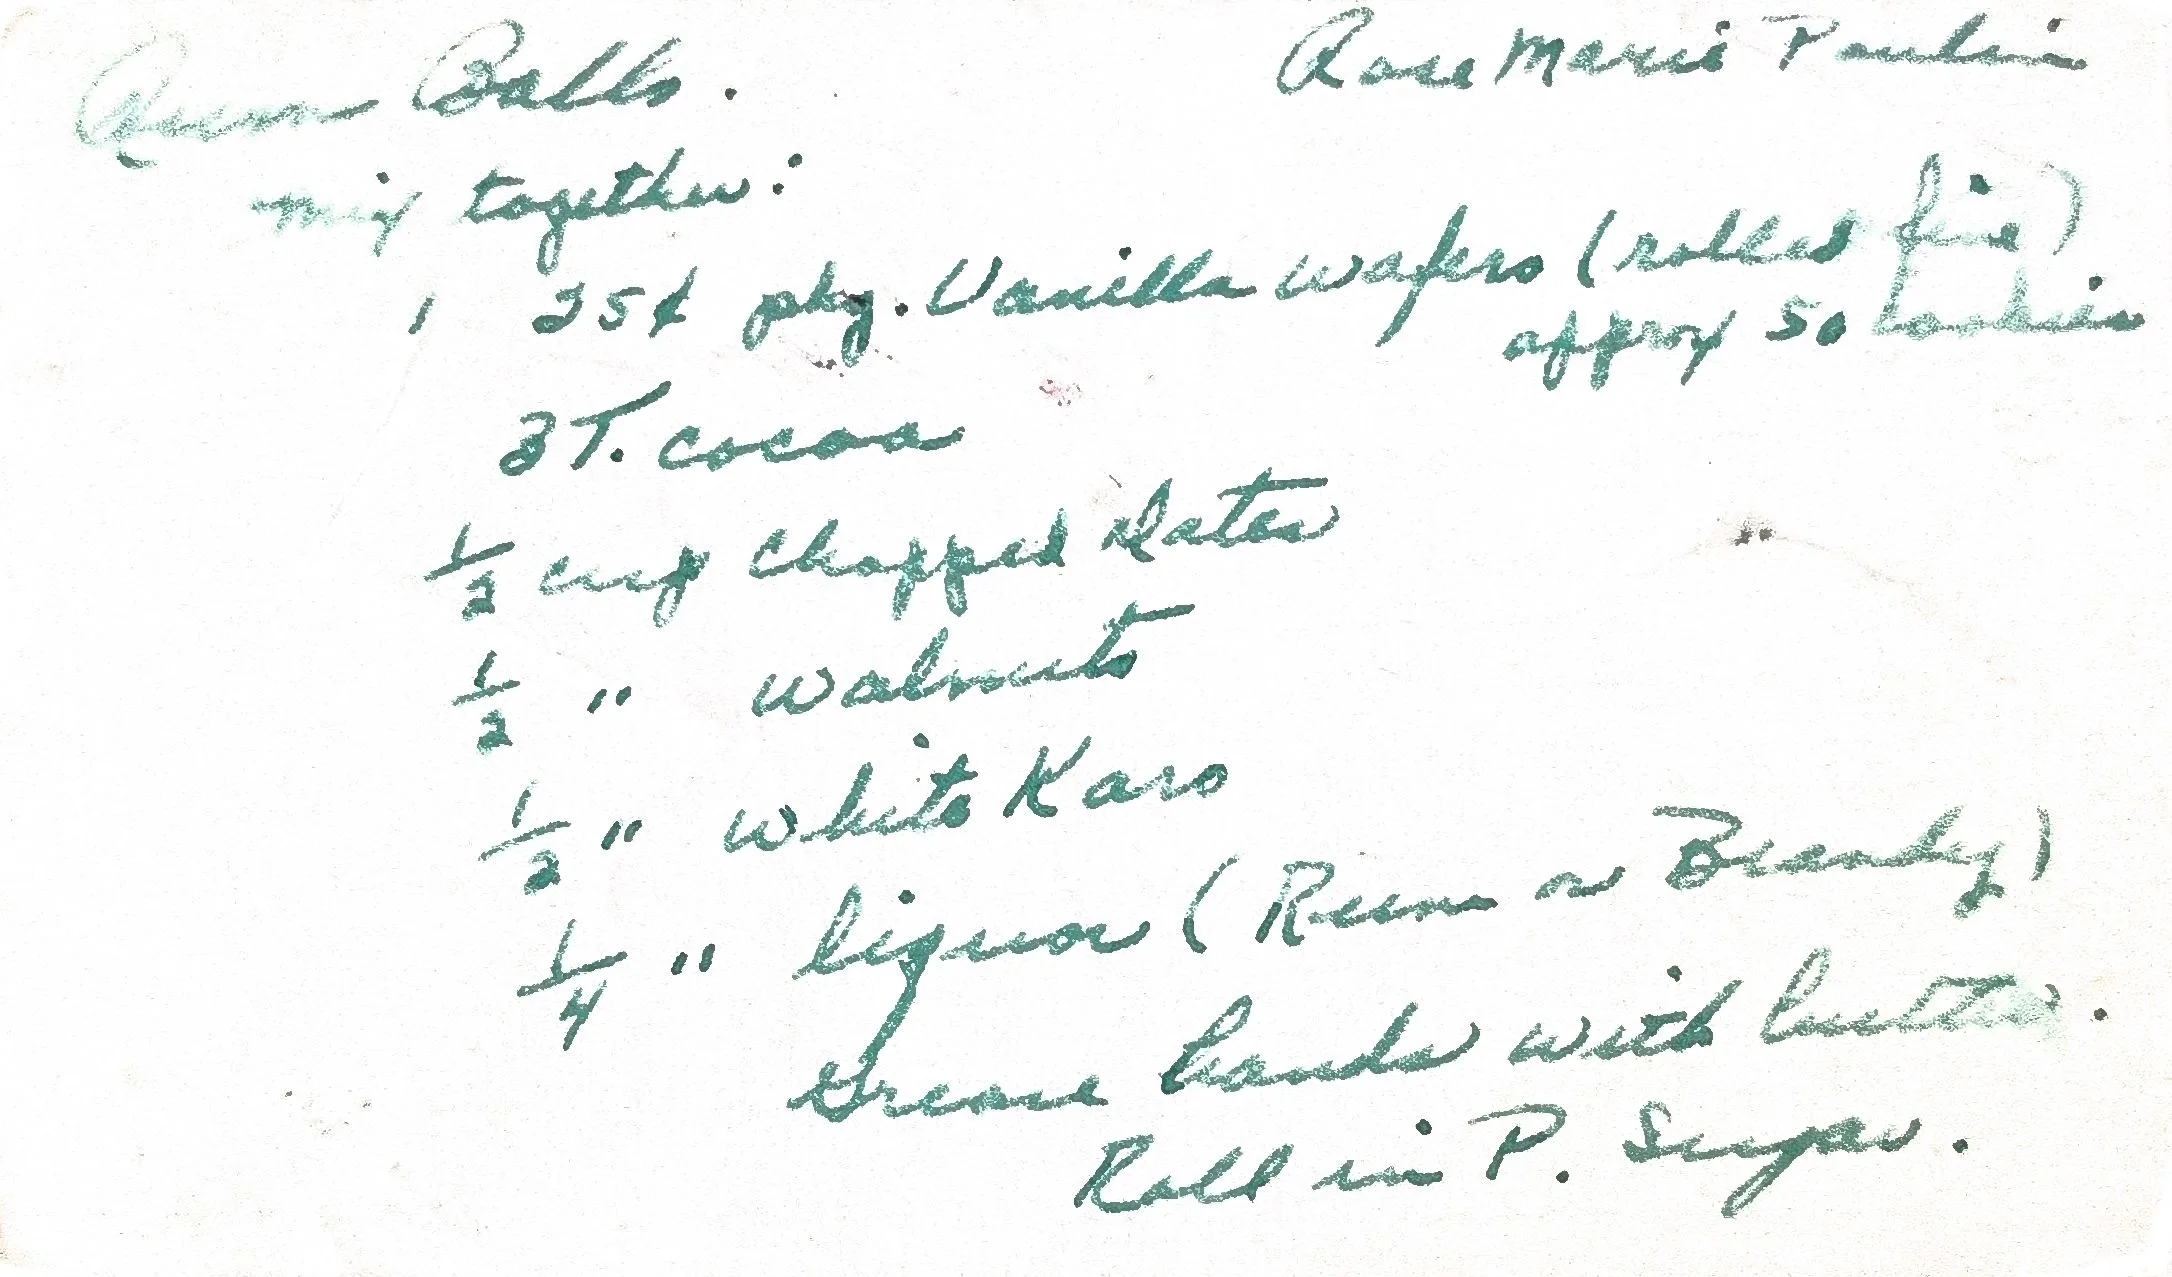 Rum Balls. Rose Marie Poulin
mix together:
1 25¢ pkg. Vanilla Wafers (rolled fine)
approx 50 cookies
3 T. cocoa
1/2 cup chopped dates
1/2 " walnuts
1/2 " white Karo
1/4 " liquor (Rum or Brandy)
Grease hands with butter.
Roll in P. Sugar.